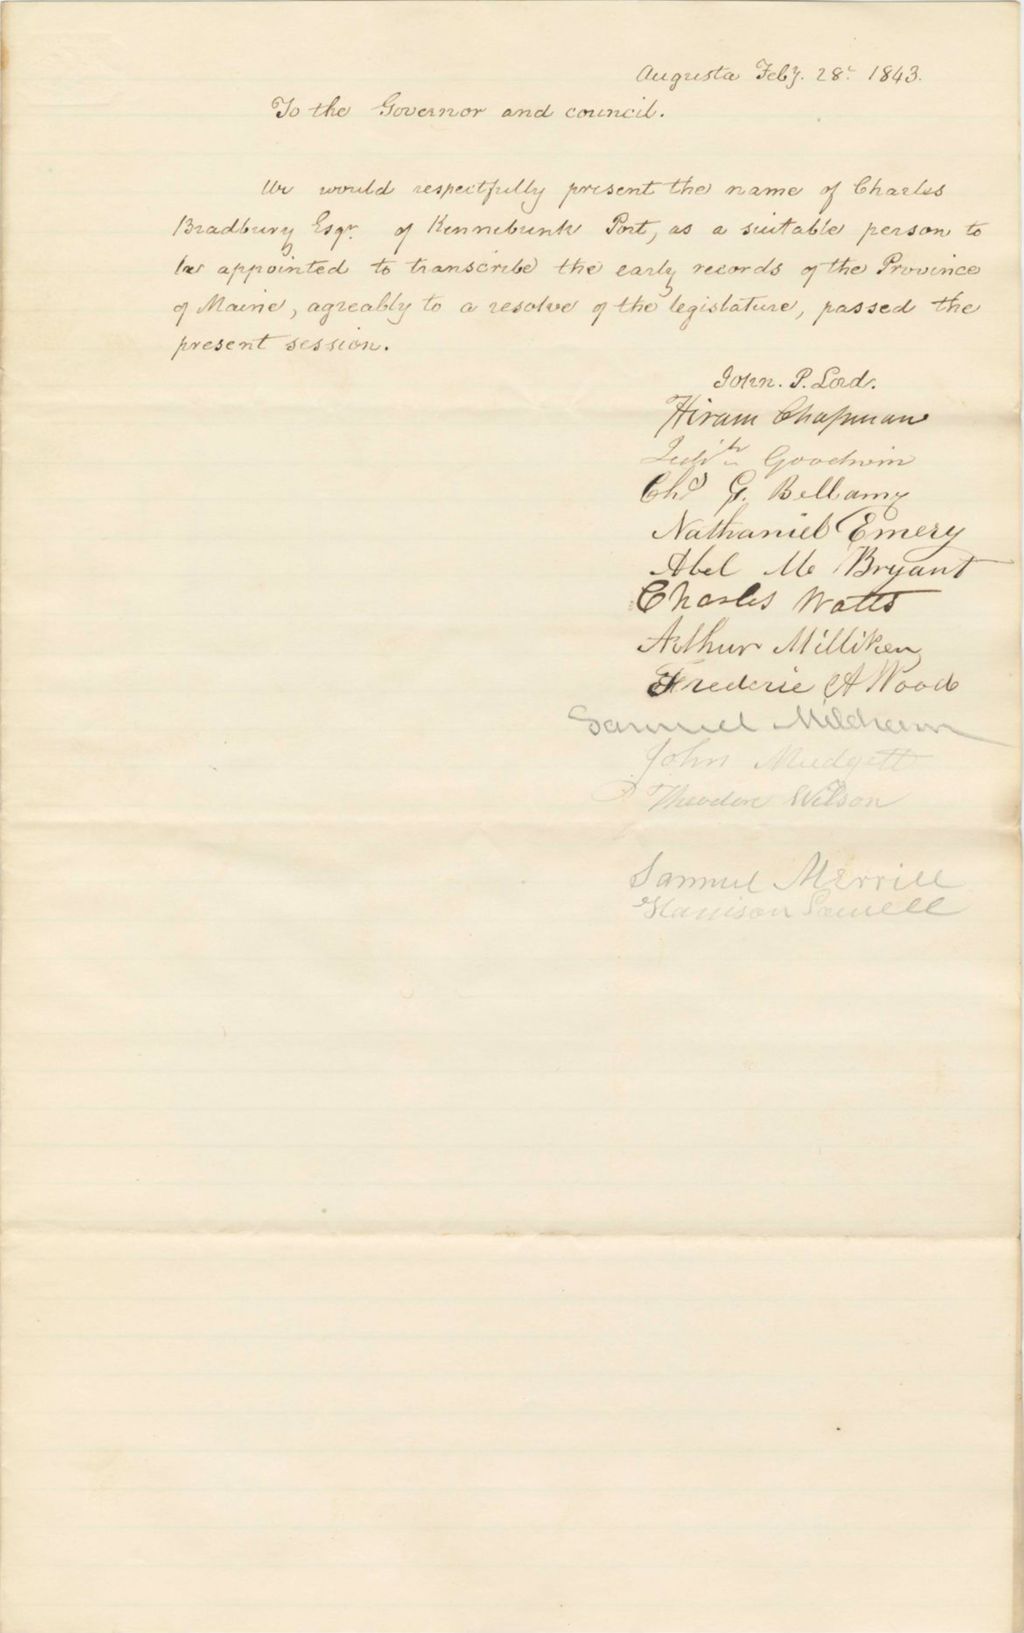 Augusta Feby. 28. 1843.
To the Governor and council.
We would respectfully present the name of Charles
Bradbury Esqr. of Kennebunk Port, as a suitable person to
be appointed to transcribe the early records of the Province
of Maine, agreably to a resolve of the legislature, passed the
present session.
John. P. Lord.
Hiram Chapman
Goodwin
Chs G. Bellamy
Nathaniel Emery
Abel M. Bryant
Charles Watts
Arthur Milliken
Frederic A Wood
Samuel Mildram
John Mudgett
Theodore Wilson
Samuel Merrill
Harrison Lowell